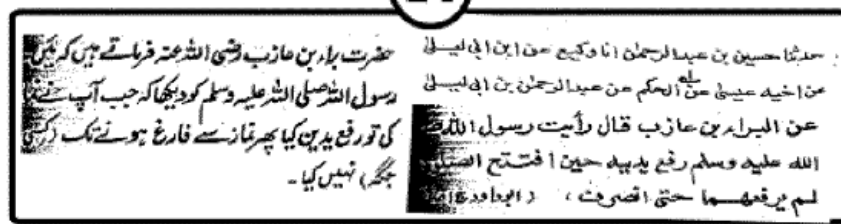 حدثنا حسين بن عبدالرحمٰن انا وكيع عن ابن ابى ليلىٰ
عن اخيه عيسىٰ عن الحكم عن عبدالرحمٰن بن ابى ليلىٰ
عن البراء بن عازب قال رأيت رسول الله
الله عليه وسلم رفع يديه حين افتتح
لم يرفعهما حتى انصرف ، (ابوداود
حضرت براء بن عازب رضی اللہ عنہ فرماتے ہیں کہ میں
رسول اللہ صلی اللہ علیہ وسلم کو دیکھا کہ جب آپ نے
کی تو رفع یدین کیا پھر نماز سے فارغ ہونے تک (کسی
جگہ) نہیں کیا ۔